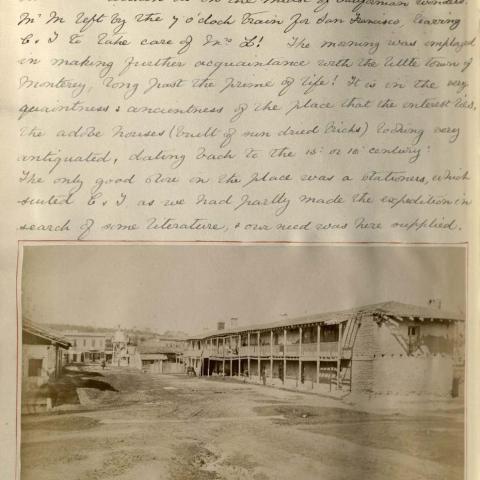 in the midst of Californian wonders.
Mr M left by the 7 o'clock train for San Francisco, leaving
C & I to take care of Mrs L! The morning was employed
in making further acquaintance with the little town of
Monterey, long past the prime of life! It is in the very
quaintness & ancientness of the place that the interest lies,
the adobe houses (built of sun dried bricks) looking very
antiquated, dating back to the 15th or 16th century.
The only good store in the place was a stationers, which
suited C & I as we had partly made the expedition in
search of some literature, & our need was here supplied.